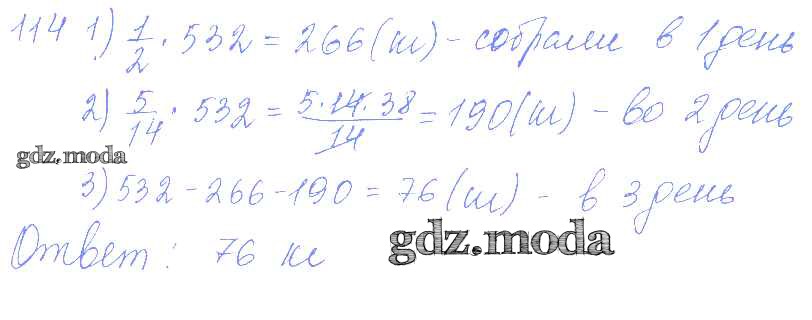 114 1) 1/2 · 532 = 266 (кг) - собрали в 1 день
2) 5/14 · 532 = 5·14·38/14 = 190 (кг) - во 2 день
gdz.moda
3) 532 - 266 - 190 = 76 (кг) - в 3 день
gdz.moda
Ответ: 76 кг